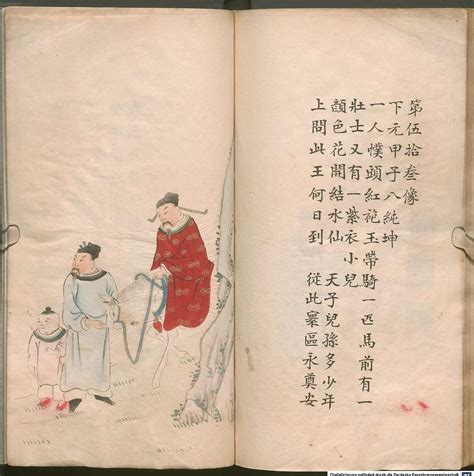 第伍拾叁像
下元甲子八純坤
一人幞頭紅袍玉帶騎一匹馬前有一
壯士又有一紫衣小兒
顏色花開結水仙 天子兒孫多少年
上問此王何日到 從此寰區永奠安
Digitalisierung gefördert durch die Deutsche Forschungsgemeinschaft